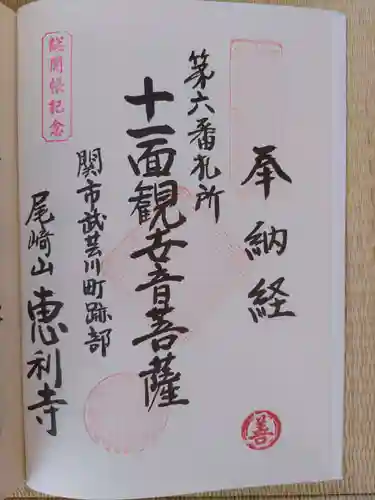 奉納経
第六番札所
十一面観世音菩薩
関市武芸川町跡部
尾﨑山恵利寺
総開帳記念
善